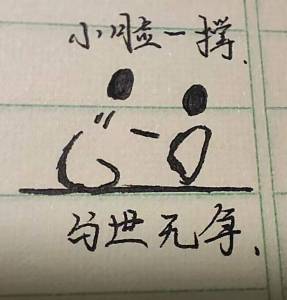 小脸一撑、
与世无争、